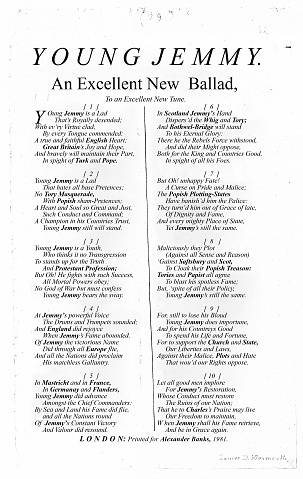 YOUNG JEMMY.
An Excellent New Ballad,
To an Excellent New Tune.
[ 1 ]
Young Jemmy is a Lad
That's Royally descended;
With ev'ry Virtue clad,
By every Tongue commended:
A true and faithful English Heart,
Great Britain's Joy and Hope,
And bravely will maintain their Part,
In spight of Turk and Pope.
[ 2 ]
Young Jemmy is a Lad
That hates all base Pretences;
No Tory Masquerade,
With Popish sham-Pretences;
A Heart and Soul so Great and Just,
Such Conduct and Command;
A Champion in his Countries Trust,
Young Jemmy still will stand.
[ 3 ]
Young Jemmy is a Youth,
Who thinks it no Transgression
To stands up for the Truth
And Protestant Profession;
But Oh! He fights with such Success,
All Mortal Powers obey;
No God of War but must confess
Young Jemmy bears the sway.
[ 4 ]
At Jemmy's powerful Voice
The Drums and Trumpets sounded;
And England did rejoyce
When Jemmy's Fame abounded.
Of Jemmy the victorious Name
Did through all Europe flie,
And all the Nations did proclaim
His matchless Gallantry.
[ 5 ]
In Mastricht and in France,
In Germanay and Flanders,
Young Jemmy did advance
Amongst the Chief Commanders:
By Sea and Land his Fame did flie,
and all the Nations round
Of Jemmy's Constant Victory
And Valour did resound.
[ 6 ]
In Scotland Jemmy's Hand
Dispers'd the Whig and Tory;
And Bothwel-Bridge will stand
To his Eternal Glory:
There he the Rebels Force withstood,
And did their Might oppose,
Both for the King and Countries Good,
In spight of all his Foes.
[ 7 ]
But Oh! unhappy Fate!
A Curse on Pride and Malice;
The Popish Plotting-States
Have banish'd him the Pallace:
They turn'd him out of Grace of late,
Of Dignity and Fame,
And every mighty Place of State,
Yet Jemmy's still the same.
[ 8 ]
Maliciously they Plot
(Against all Sense and Reason)
'Gainst Salisbury and Scot,
To Cloak their Popish Treason:
Tories and Papist all agree
To blast his spotless Fame;
But, 'spite of all their Policy;
Young Jemmy's still the same.
[ 9 ]
For, still to lose his Blood
Young Jemmy does importune,
And for his Countreys Good
To spend his Life and Fortune,
For to support the Church and State,
Our Liberties and Laws,
Against their Malice, Plots and Hate
That you'd our Rights oppose.
[ 10 ]
Let all good men implore
For Jemmy's Restoration,
Whose Conduct must restore
The Ruins of our Nation;
That he to Charles's Praise may live
Our Freedom to maintain,
W hen Jemmy shall his Fame retrieve,
And be in Grace again.
LONDON: Printed for Alexander Banks, 1981.